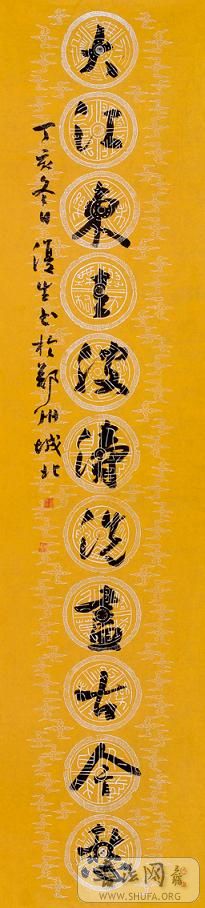 大江東去波濤洗盡古今愁
丁亥冬日復生书於鄭州城北
书法网
WWW.SHUFA.ORG